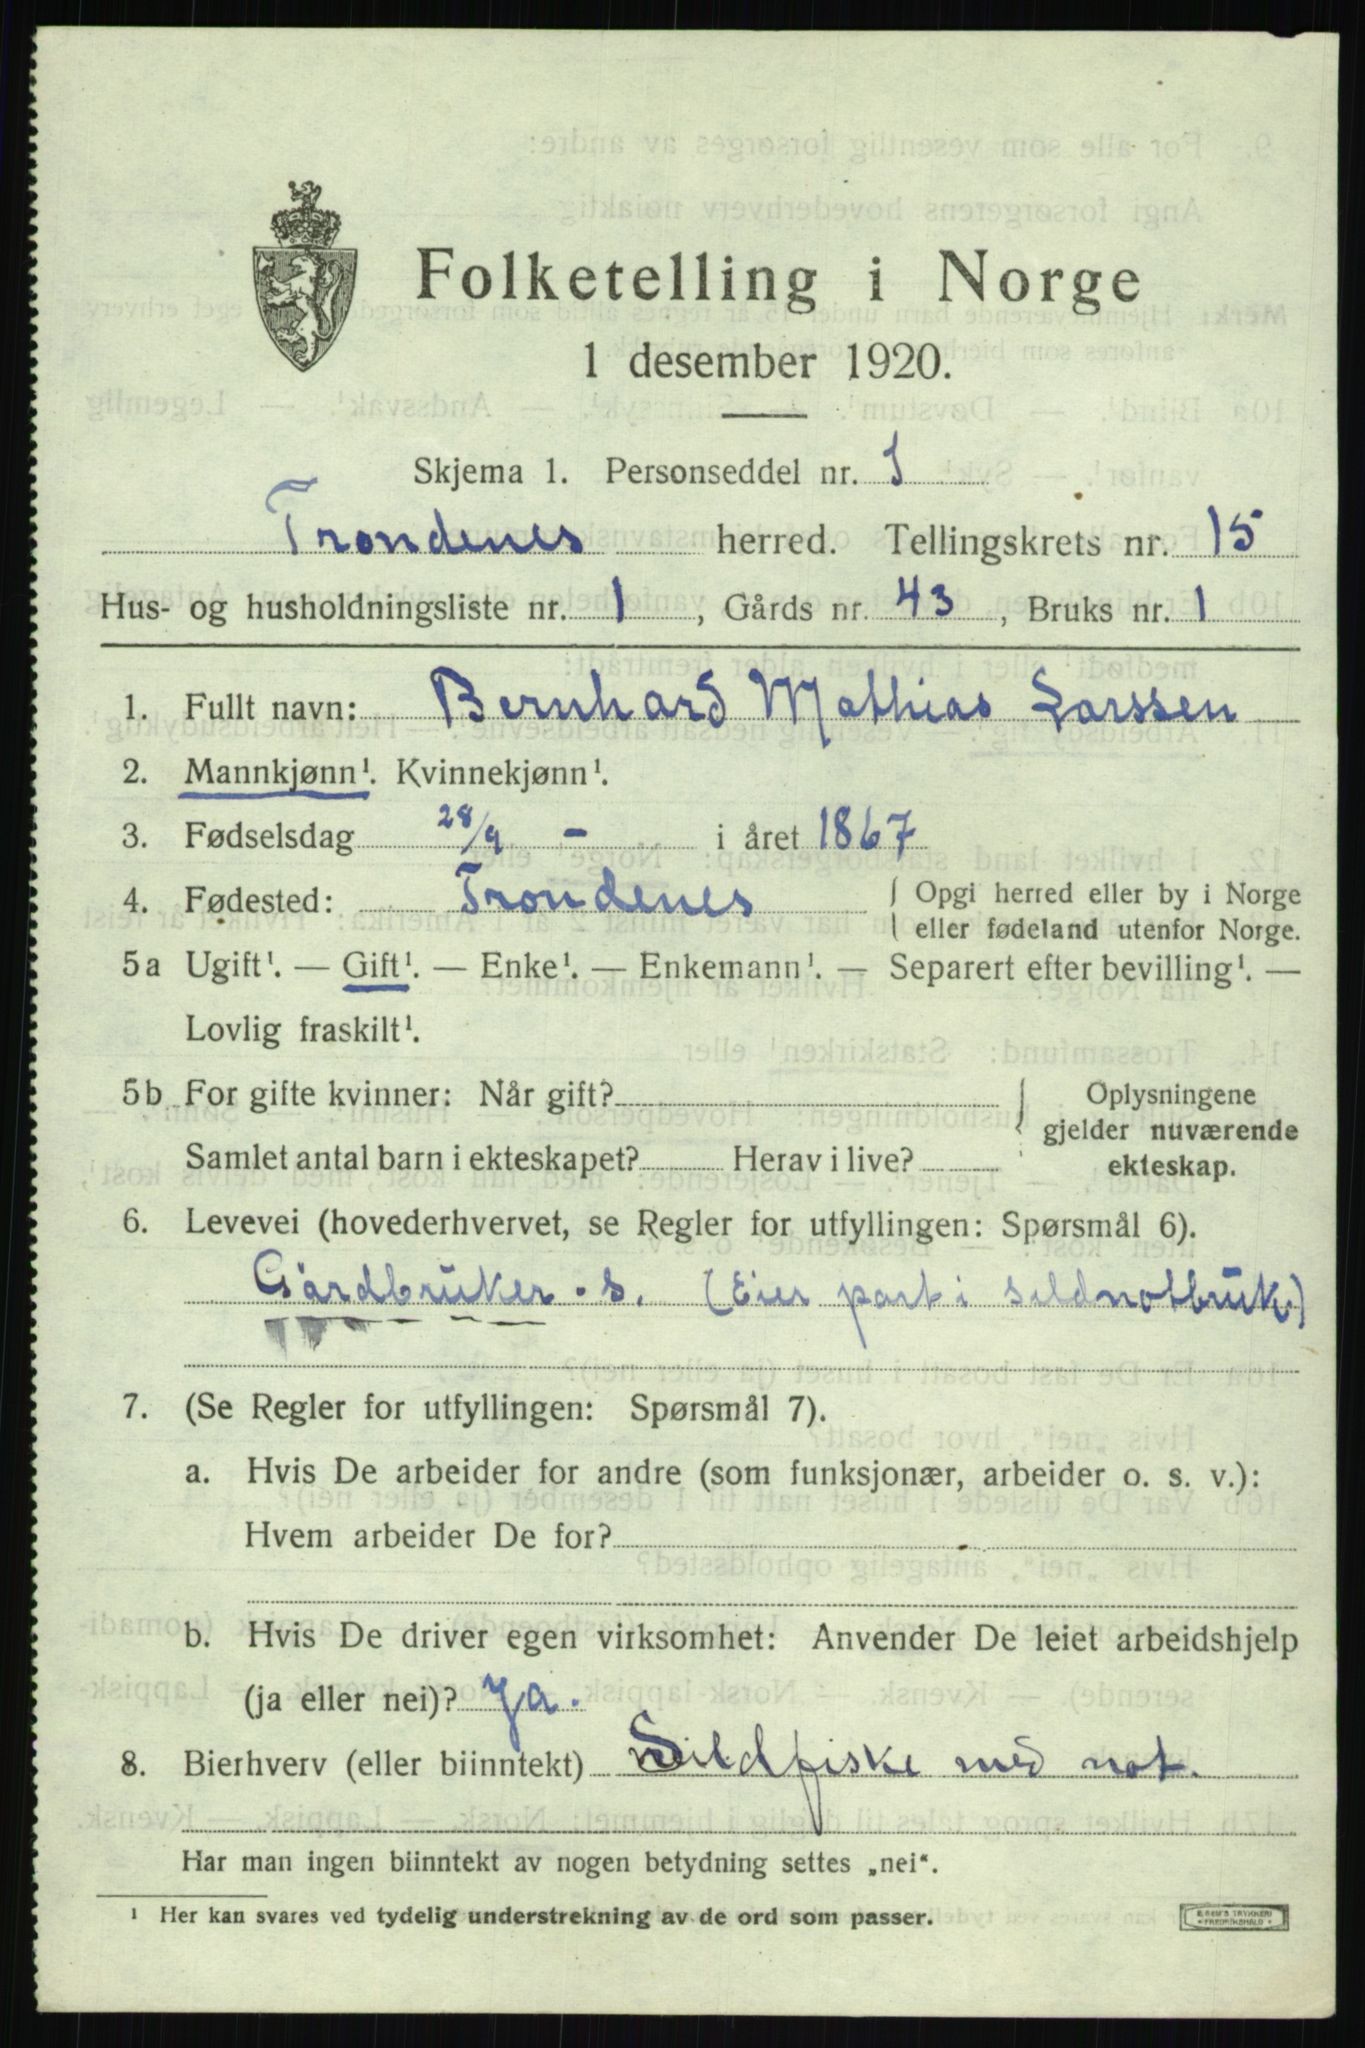 Folketelling i Norge
1 desember 1920.
Skjema 1. Personseddel nr. 1
Trondenes herred. Tellingskrets nr. 15
Hus- og husholdningsliste nr. 1, Gårds nr. 43, Bruks nr. 1
1. Fullt navn: Bernhard Mathias Larssen
2. Mannkjønn¹. Kvinnekjønn¹.
3. Fødselsdag 28/9 - i året 1867
4. Fødested: Trondenes { Opgi herred eller by i Norge
eller fødeland utenfor Norge.
5a Ugift¹. — Gift¹. — Enke¹. — Enkemann¹. — Separert efter bevilling¹. —
Lovlig fraskilt¹.
5b For gifte kvinner: Når gift? } Oplysningene
gjelder nuværende
Samlet antal barn i ekteskapet? Herav i live? ekteskap.
6. Levevei (hovederhvervet, se Regler for utfyllingen: Spørsmål 6).
Gårdbruker. s. (Eier part i sildnotbruk)
7. (Se Regler for utfyllingen: Spørsmål 7).
a. Hvis De arbeider for andre (som funksjonær, arbeider o. s. v.):
Hvem arbeider De for?
b. Hvis De driver egen virksomhet: Anvender De leiet arbeidshjelp
(ja eller nei)? ja.
8. Bierhverv (eller biinntekt) Sildfiske med not.
Har man ingen biinntekt av nogen betydning settes „nei“.
¹ Her kan svares ved tydelig understrekning av de ord som passer.